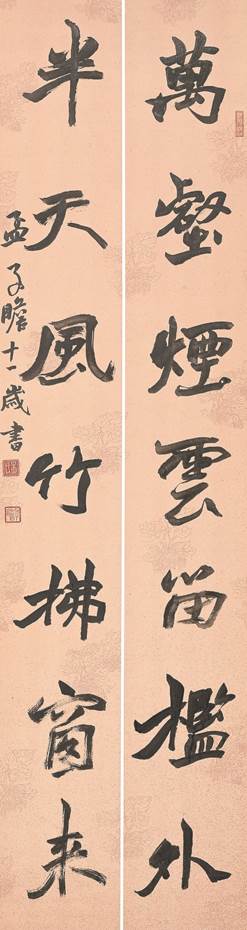 萬壑煙雲留檻外
半天風竹拂窗来
孟子瞻十一歲書